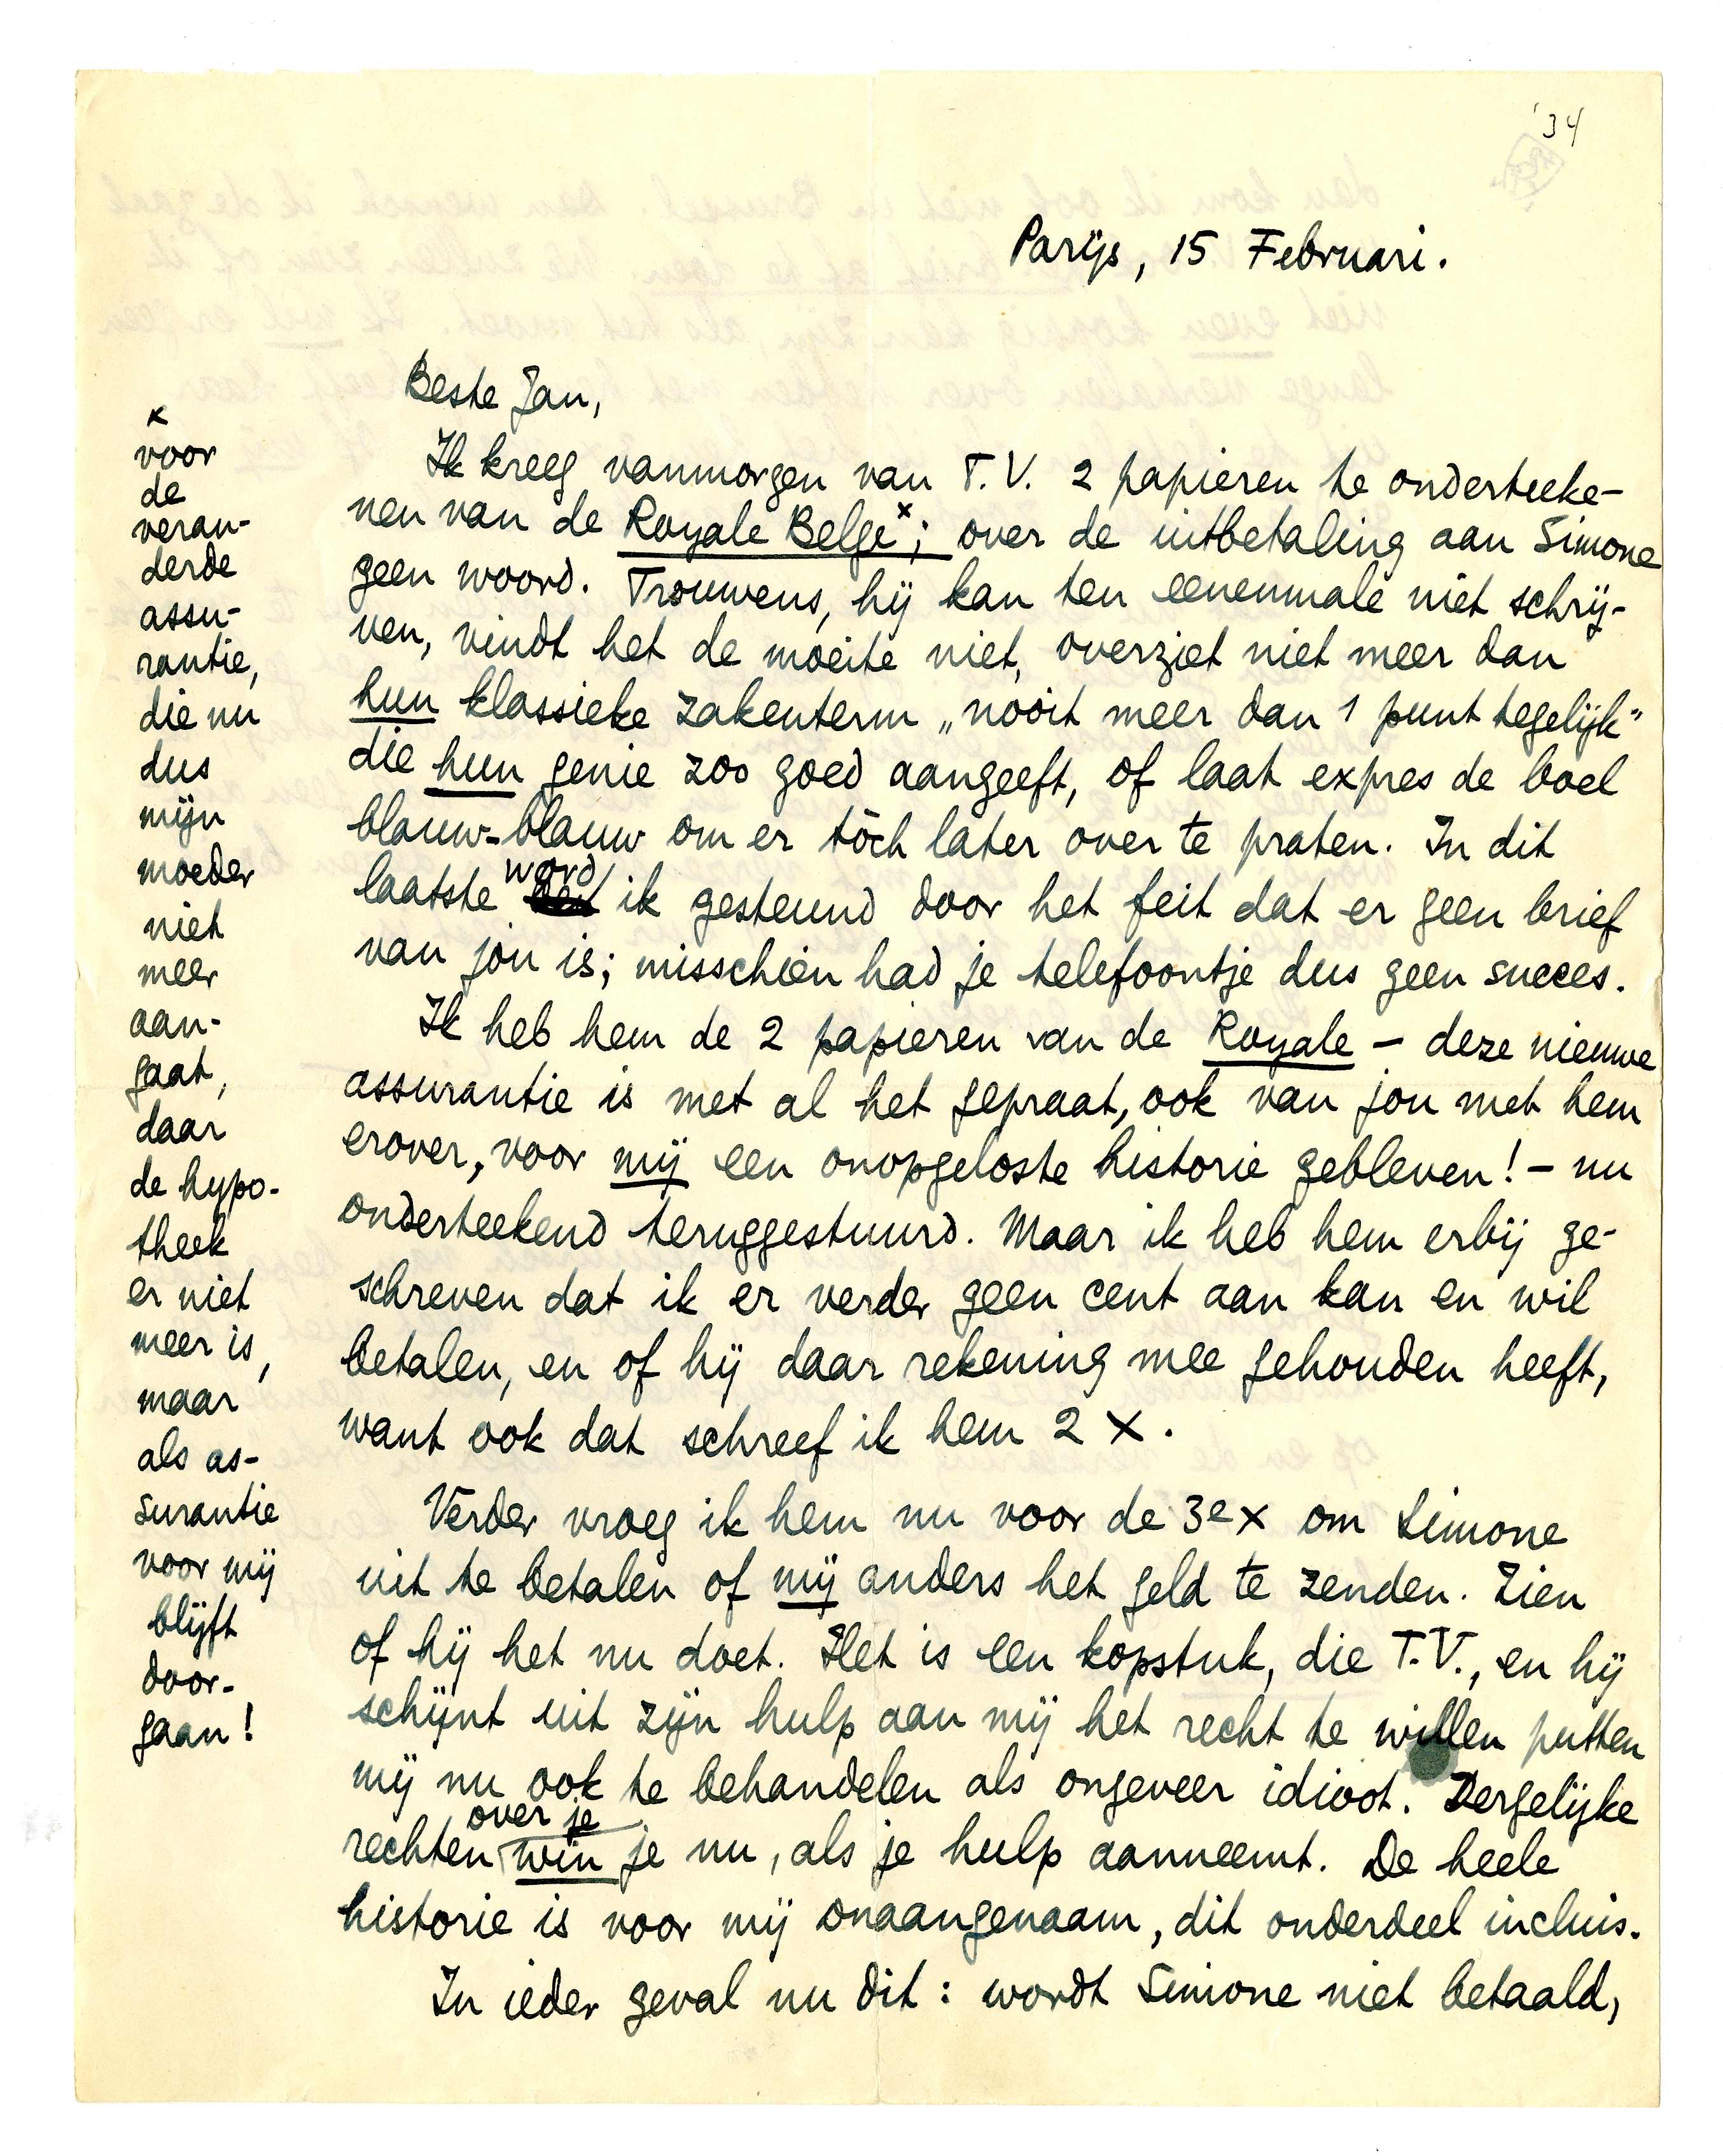 '34
Parijs, 15 Februari.
Beste Jan,
Ik kreeg vanmorgen van T.V. 2 papieren te onderteeke-
nen van de Royale Belge x; over de uitbetaling aan Simone
geen woord. Trouwens, hij kan ten eenenmale niet schrij-
ven, vindt het de moeite niet, overziet niet meer dan
hun klassieke zakenterm „nooit meer dan 1 punt tegelijk"
die hun genie zoo goed aangeeft, of laat expres de boel
blauw-blauw om er tòch later over te praten. In dit
laatste word ik gesteund door het feit dat er geen brief
van jou is; misschien had je telefoontje dus geen succes.
Ik heb hem de 2 papieren van de Royale – deze nieuwe
assurantie is met al het gepraat, ook van jou met hem
erover, voor mij een onopgeloste historie gebleven! – nu
onderteekend teruggestuurd. Maar ik heb hem erbij ge-
schreven dat ik er verder geen cent aan kan en wil
betalen, en of hij daar rekening mee gehouden heeft,
want ook dat schreef ik hem 2 x.
Verder vroeg ik hem nu voor de 3e x om Simone
uit te betalen of mij anders het geld te zenden. Zien
of hij het nu doet. Het is een kopstuk, die T.V., en hij
schijnt uit zijn hulp aan mij het recht te willen putten
mij nu ook te behandelen als ongeveer idioot. Dergelijke
rechten over je win je nu, als je hulp aanneemt. De heele
historie is voor mij onaangenaam, dit onderdeel incluis.
In ieder geval nu dit: wordt Simone niet betaald,
x
voor
de
veran-
derde
assu-
rantie,
die nu
dus
mijn
moeder
niet
meer
aan-
gaat,
daar
de hypo-
theek
er niet
meer is,
maar
als as-
surantie
voor mij
blijft
door-
gaan!